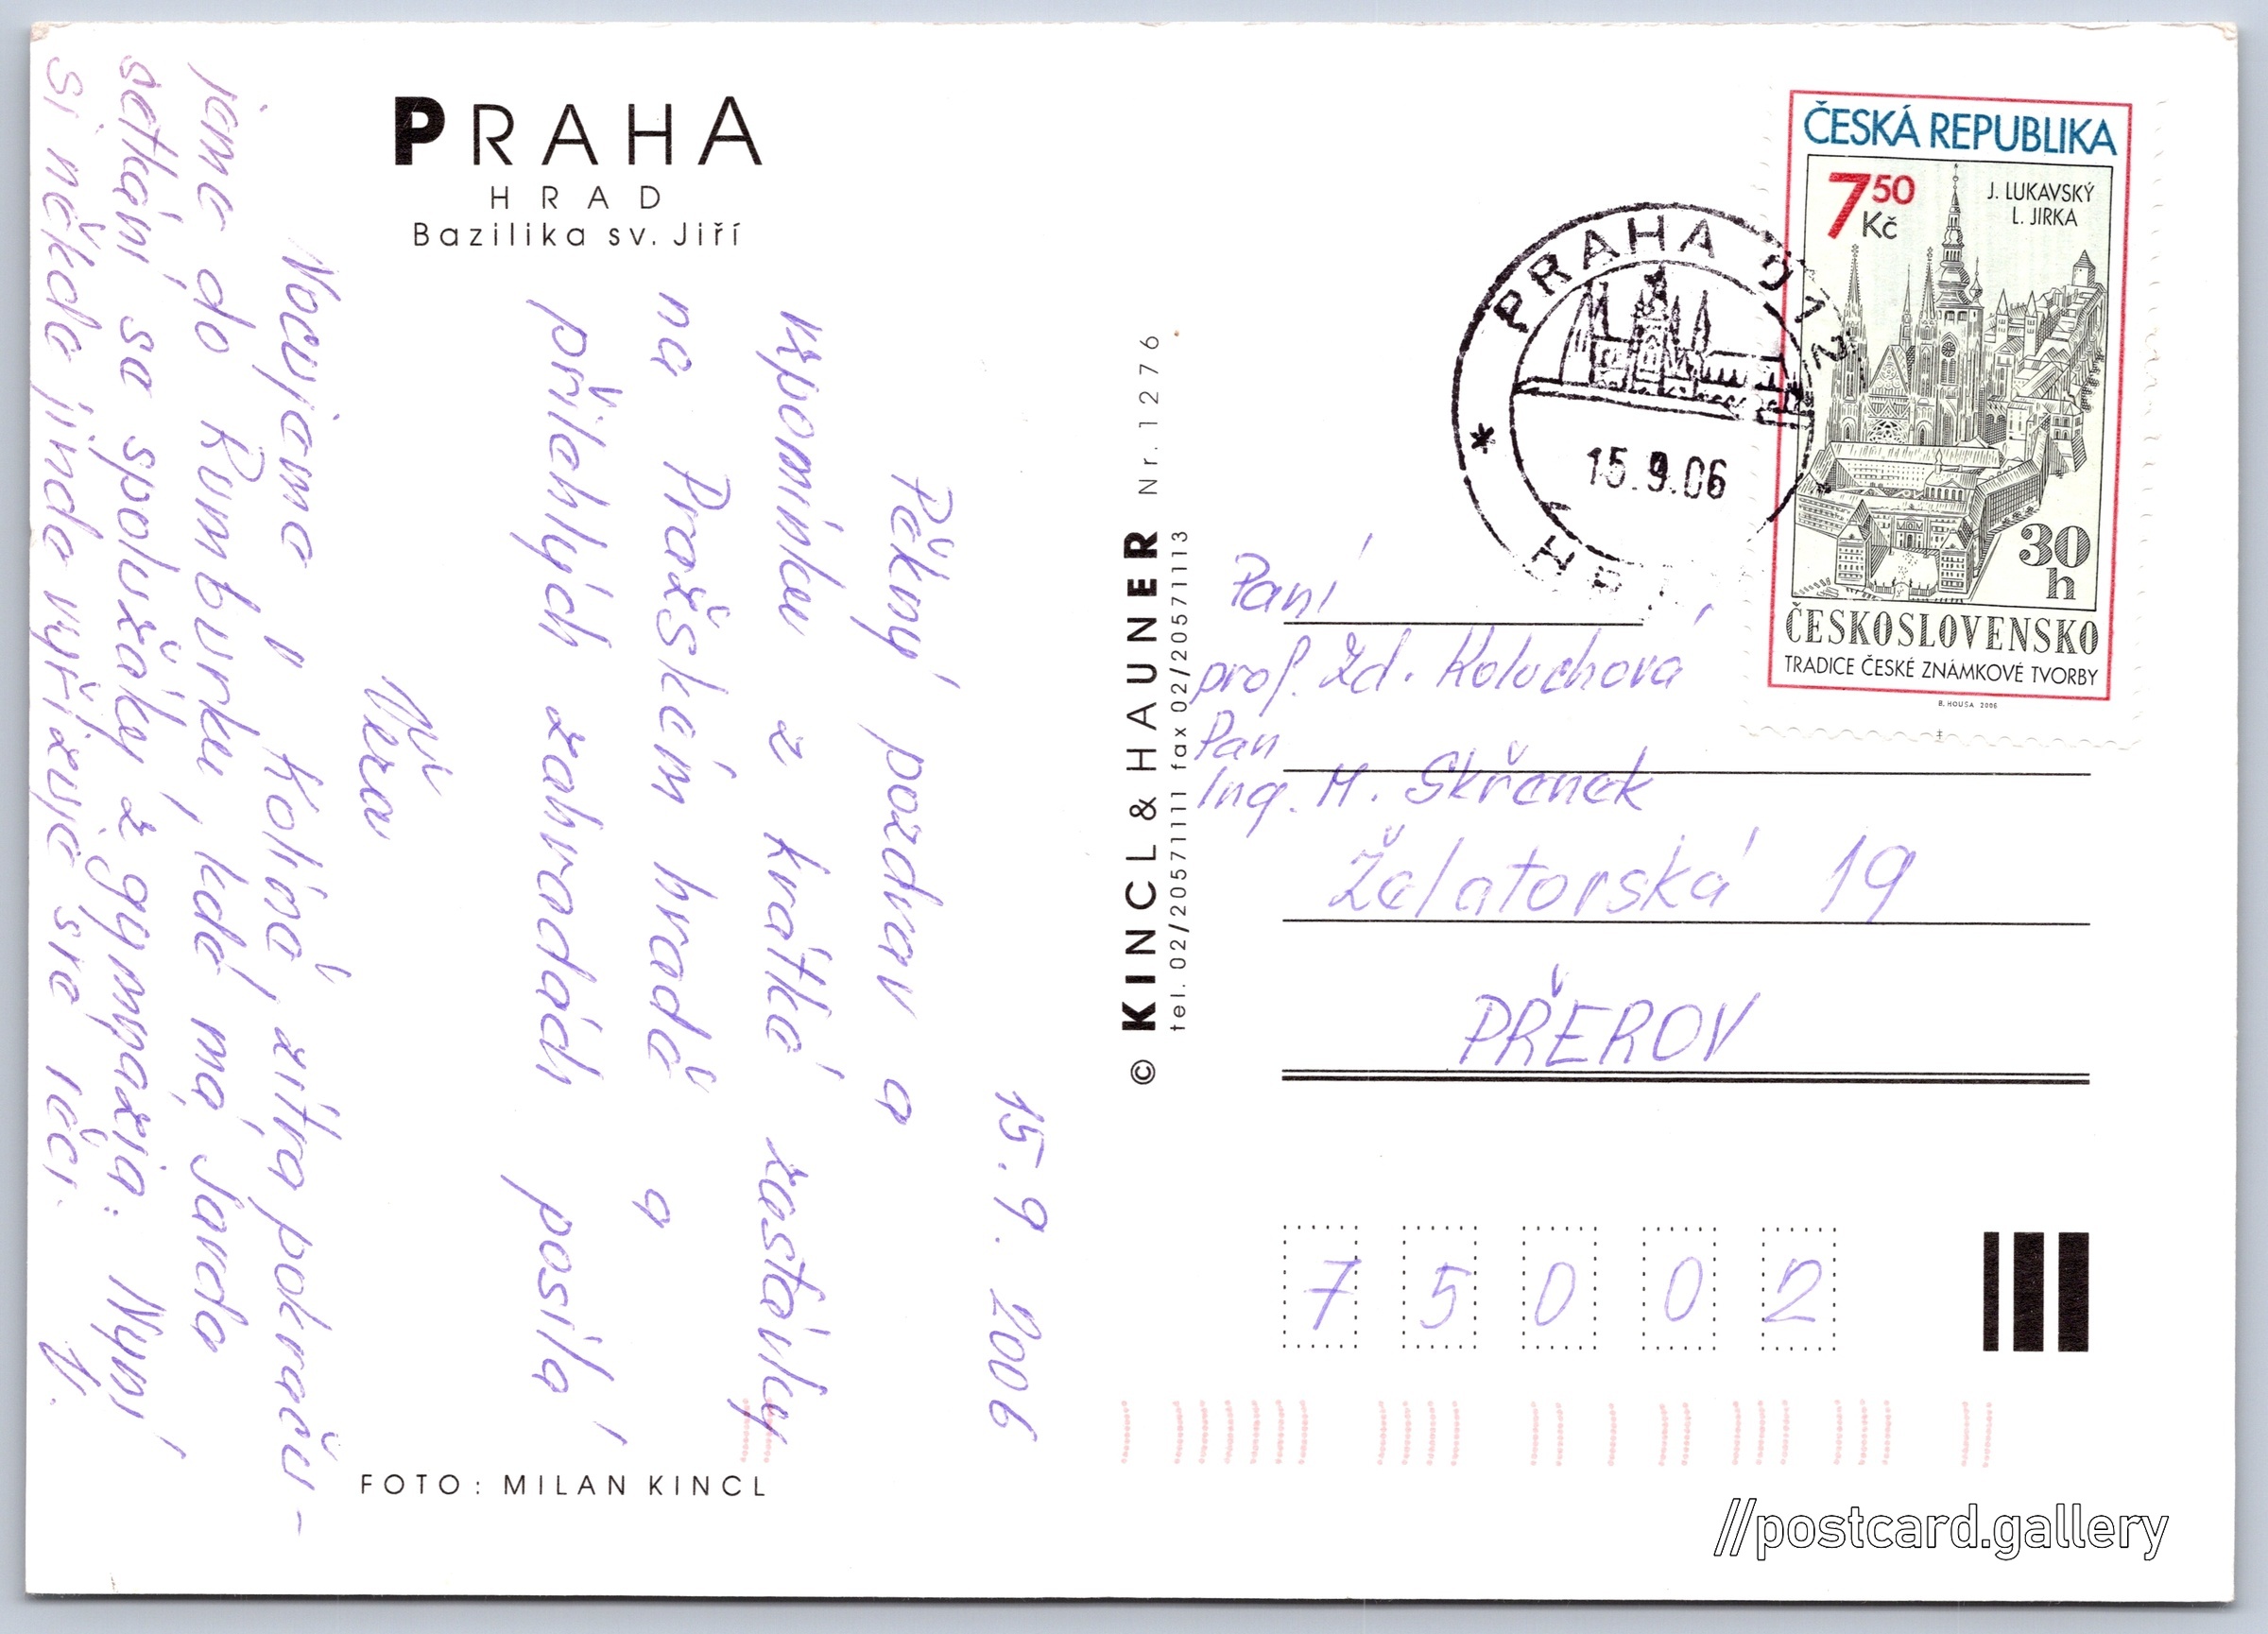 PRAHA
HRAD
Bazilika sv. Jiří
15. 9. 2006
Pěkný pozdrav a
vzpomínku z krátké zastávky
na Pražském hradě a
přilehlých zahradách posílá
Věra
Nocujeme v Kolíně, zítra pokraču-
jeme do Rumburku, kde má Jarda
setkání se spolužáky z gympazia. Nyní
si někde jinde vyřizuje své věci. V.
FOTO: MILAN KINCL
© KINCL & HAUNER Nr. 1276
tel. 02/20571111 fax 02/20571113
ČESKÁ REPUBLIKA
750 Kč
J. LUKAVSKÝ
L. JIRKA
30 h
ČESKOSLOVENSKO
TRADICE ČESKÉ ZNÁMKOVÉ TVORBY
B. HOUSA 2006
PRAHA
15.9.06
Paní
prof. Zd. Koluchová
Pan
Ing. M. Skřenek
Želatorská 19
PŘEROV
75002
//postcard.gallery